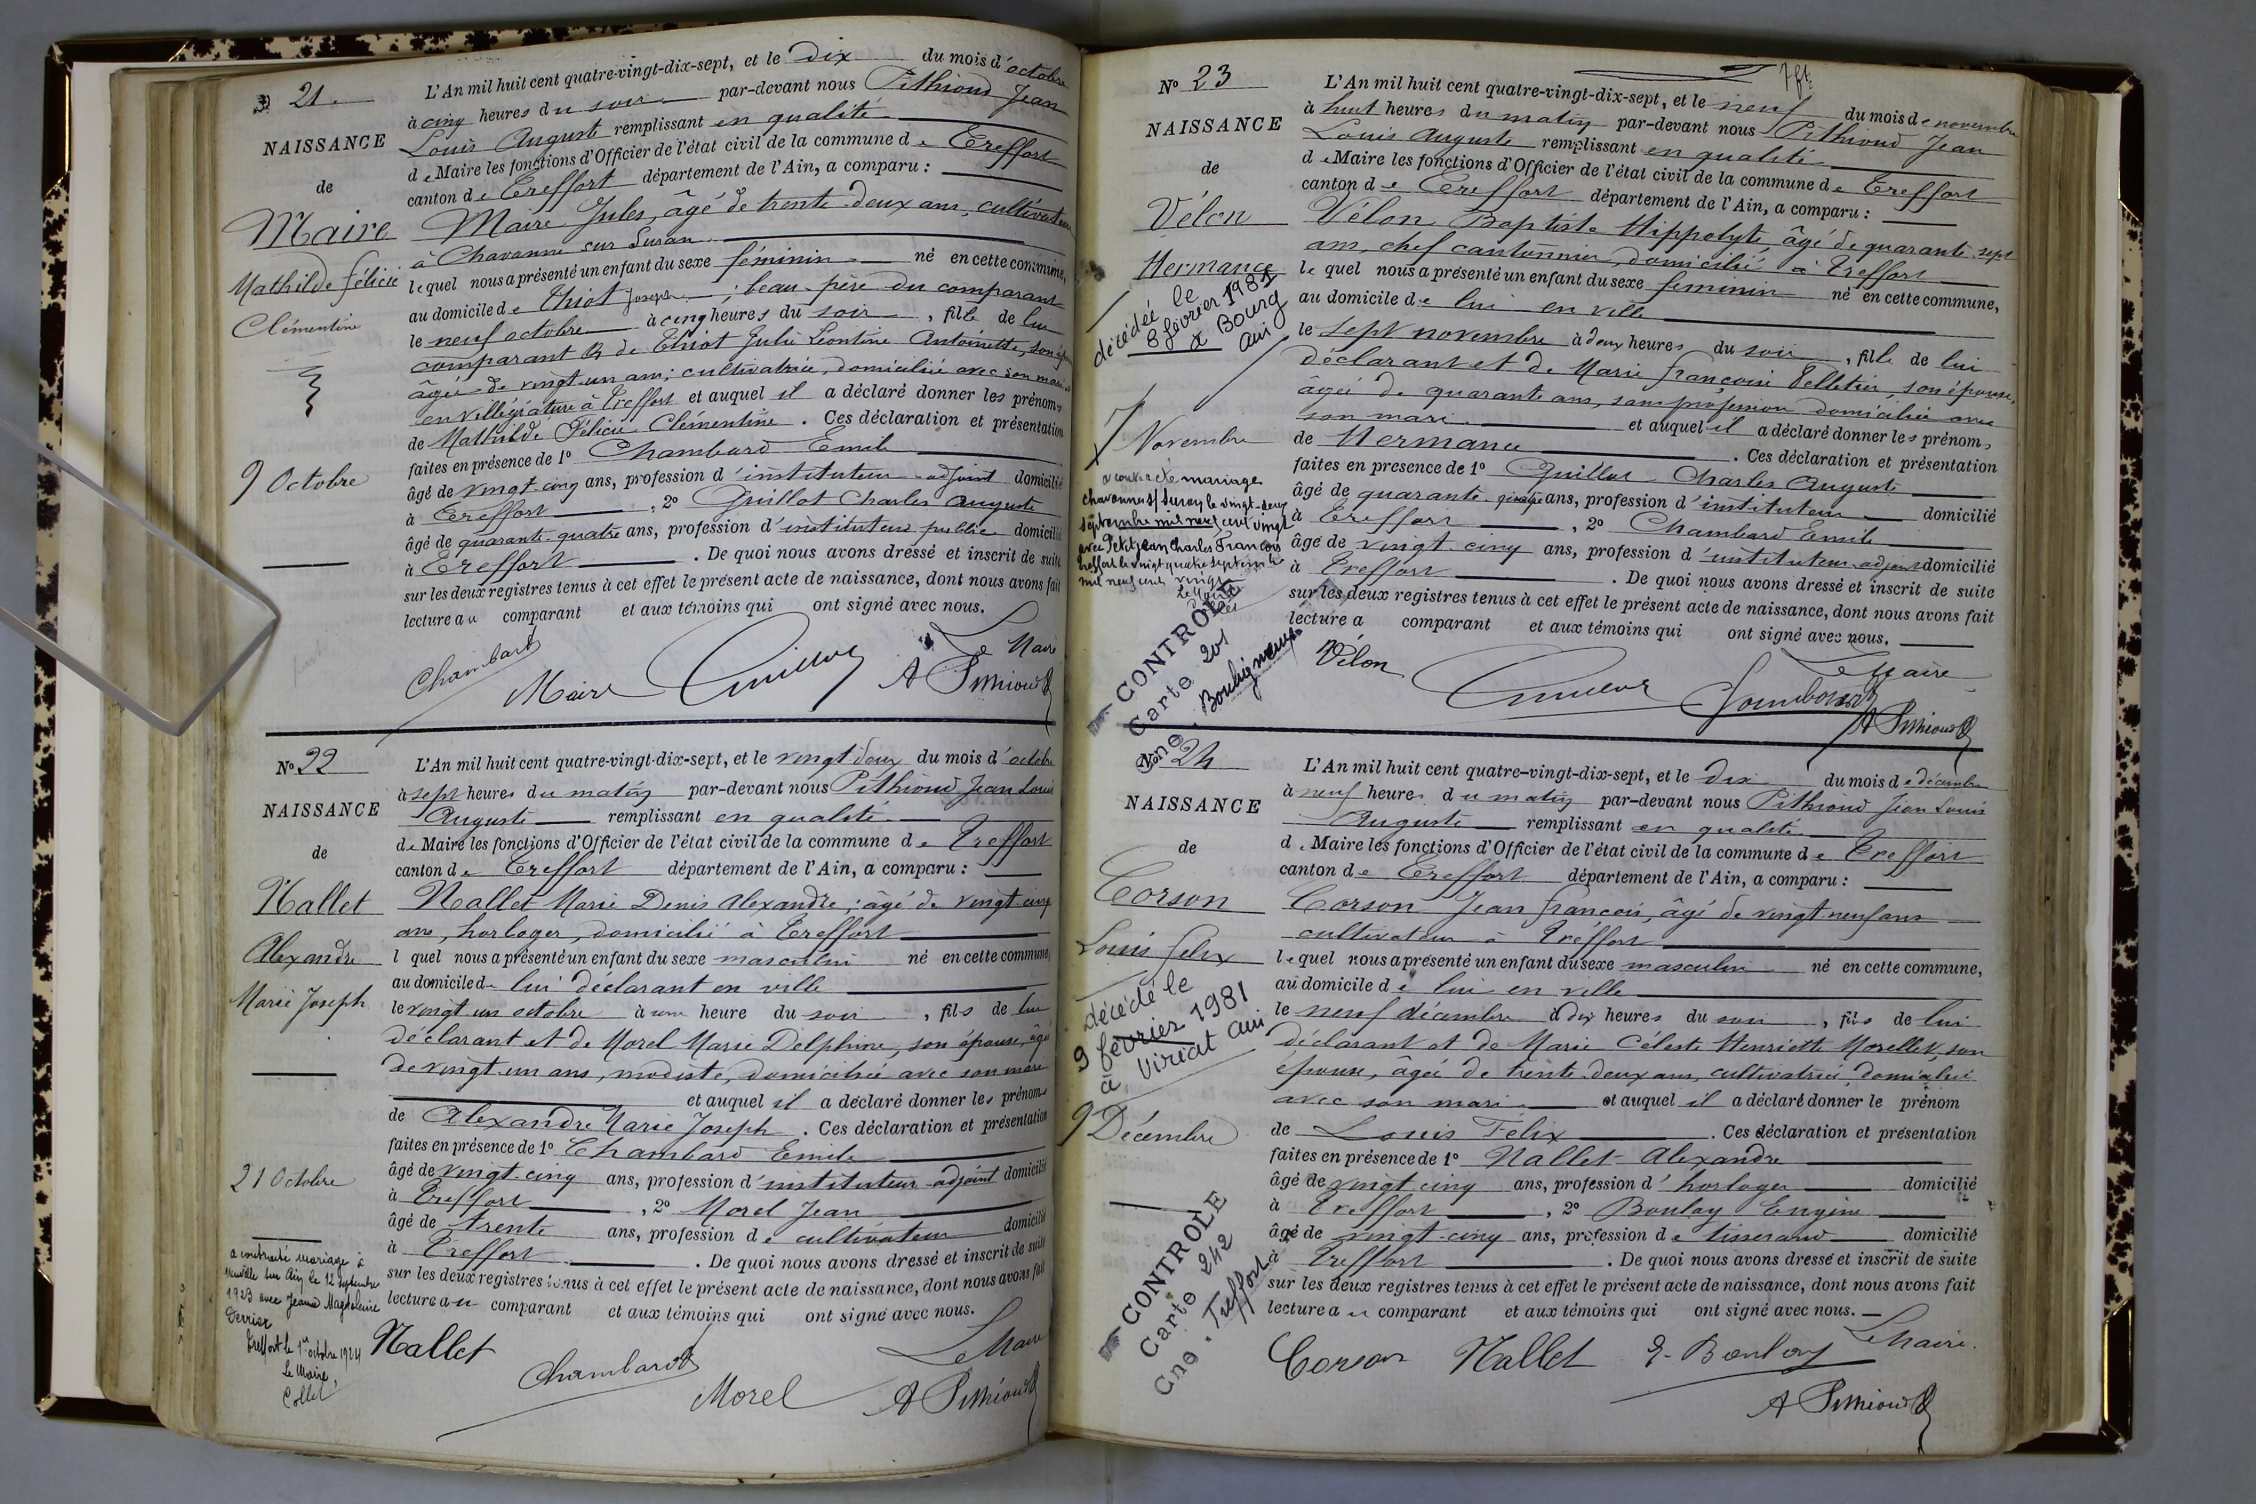 21.
NAISSANCE
de
Maire
Mathilde félicie
Clémentine
9 Octobre
L'An mil huit cent quatre-vingt-dix-sept, et le dix du mois d'octobre
à cinq heures du soir par-devant nous Pithioud Jean
Louis Auguste remplissant en qualité
de Maire les fonctions d'Officier de l'état civil de la commune de Treffort
canton de Treffort département de l'Ain, a comparu :
Maire Jules, âgé de trente-deux ans, cultivateur
à Chavanne sur Suran
lequel nous a présenté un enfant du sexe féminin né en cette commune,
au domicile de Thiot Joseph ; beau-père du comparant
le neuf octobre à cinq heures du soir, fille de lui
comparant & de Thiot Julie Léontine Antoinette, son épouse
âgée de vingt-un ans ; cultivatrice, domiciliée avec son mari
en villégiature à Treffort et auquel il a déclaré donner les prénoms
de Mathilde Félicie Clémentine. Ces déclaration et présentation
faites en présence de 1° Chambard Emile
âgé de vingt-cinq ans, profession d'instituteur-adjoint domicilié
à Treffort, 2° Guillot Charles Auguste
âgé de quarante-quatre ans, profession d'instituteur public domicilié
à Treffort. De quoi nous avons dressé et inscrit de suite
sur les deux registres tenus à cet effet le présent acte de naissance, dont nous avons fait
lecture au comparant et aux témoins qui ont signé avec nous.
Le Maire
Chambard Maire Guillot A Pithioud
N° 22
NAISSANCE
de
Nallet
Alexandre
Marie Joseph
21 Octobre
a contracté mariage à
Neuville sur Ain le 12 septembre
1923 avec Jeanne Magdeleine
Perrier
Treffort le 1er octobre 1924
Le Maire,
Collet
L'An mil huit cent quatre-vingt-dix-sept, et le vingt-deux du mois d'octobre
à sept heures du matin par-devant nous Pithioud Jean Louis
Auguste remplissant en qualité
de Maire les fonctions d'Officier de l'état civil de la commune de Treffort
canton de Treffort département de l'Ain, a comparu :
Nallet Marie Denis Alexandre ; âgé de vingt-cinq
ans, horloger, domicilié à Treffort
l quel nous a présenté un enfant du sexe masculin né en cette commune,
au domicile de lui déclarant en ville
le vingt un octobre à une heure du soir, fils de lui
déclarant et de Morel Marie Delphine, son épouse, âgée
de vingt-un ans, modiste, domiciliée avec son mari
et auquel il a déclaré donner les prénoms
de Alexandre Marie Joseph. Ces déclaration et présentation
faites en présence de 1° Chambard Emile
âgé de vingt-cinq ans, profession d'instituteur-adjoint domicilié
à Treffort, 2° Morel Jean
âgé de trente ans, profession de cultivateur domicilié
à Treffort. De quoi nous avons dressé et inscrit de suite
sur les deux registres tenus à cet effet le présent acte de naissance, dont nous avons fait
lecture au comparant et aux témoins qui ont signé avec nous.
Le Maire
Nallet Chambard Morel A Pithioud
N° 23
NAISSANCE
de
Vélon
Hermance
décédée le
8 février 1981
à Bourg
Ain
7 Novembre
a contracté mariage
Chavannes s/ Suran le vingt-deux
septembre mil neuf cent vingt
avec Petitjean Charles François
Treffort le vingt quatre septembre
mil neuf cent vingt
Le Maire
CONTROLE
Carte 201
Cne. Bouligneux
7bre
L'An mil huit cent quatre-vingt-dix-sept, et le neuf du mois de novembre
à huit heures du matin par-devant nous Pithioud Jean
Louis Auguste remplissant en qualité
de Maire les fonctions d'Officier de l'état civil de la commune de Treffort
canton de Treffort département de l'Ain, a comparu :
Vélon Baptiste Hippolyte, âgé de quarante-sept
ans, chef cantonnier, domicilié à Treffort
le quel nous a présenté un enfant du sexe féminin né en cette commune,
au domicile de lui en ville
le sept novembre à deux heures du soir, fille de lui
déclarant et de Marie françoise Pelletier, son épouse,
âgée de quarante ans, sans profession domiciliée avec
son mari et auquel il a déclaré donner les prénoms
de Hermance. Ces déclaration et présentation
faites en présence de 1° Guillot Charles Auguste
âgé de quarante-quatre ans, profession d'instituteur domicilié
à Treffort, 2° Chambard Emile
âgé de vingt-cinq ans, profession d'instituteur-adjoint domicilié
à Treffort. De quoi nous avons dressé et inscrit de suite
sur les deux registres tenus à cet effet le présent acte de naissance, dont nous avons fait
lecture a comparant et aux témoins qui ont signé avec nous.
Le Maire
Vélon Guillot Chambard
A Pithioud
N° 24
NAISSANCE
de
Corson
Louis felix
décédé le
9 février 1981
à Viriat Ain
9 Décembre
CONTROLE
Carte 242
Cne. Treffort
L'An mil huit cent quatre-vingt-dix-sept, et le dix du mois de décembre
à neuf heures du matin par-devant nous Pithioud Jean Louis
Auguste remplissant en qualité
de Maire les fonctions d'Officier de l'état civil de la commune de Treffort
canton de Treffort département de l'Ain, a comparu :
Corson Jean françois, âgé de vingt-neuf ans
cultivateur à Treffort
lequel nous a présenté un enfant du sexe masculin né en cette commune,
au domicile de lui en ville
le neuf décembre à dix heures du soir, fils de lui
déclarant et de Marie Céleste Henriette Morellet, son
épouse, âgée de trente-deux ans, cultivatrice, domiciliée
avec son mari et auquel il a déclaré donner le prénom
de Louis Félix. Ces déclaration et présentation
faites en présence de 1° Nallet Alexandre
âgé de vingt-cinq ans, profession d'horloger domicilié
à Treffort, 2° Boulay Eugène
âgé de vingt-cinq ans, profession de tisserand domicilié
à Treffort. De quoi nous avons dressé et inscrit de suite
sur les deux registres tenus à cet effet le présent acte de naissance, dont nous avons fait
lecture au comparant et aux témoins qui ont signé avec nous.
Le Maire.
Corson Nallet E. Boulay
A Pithioud